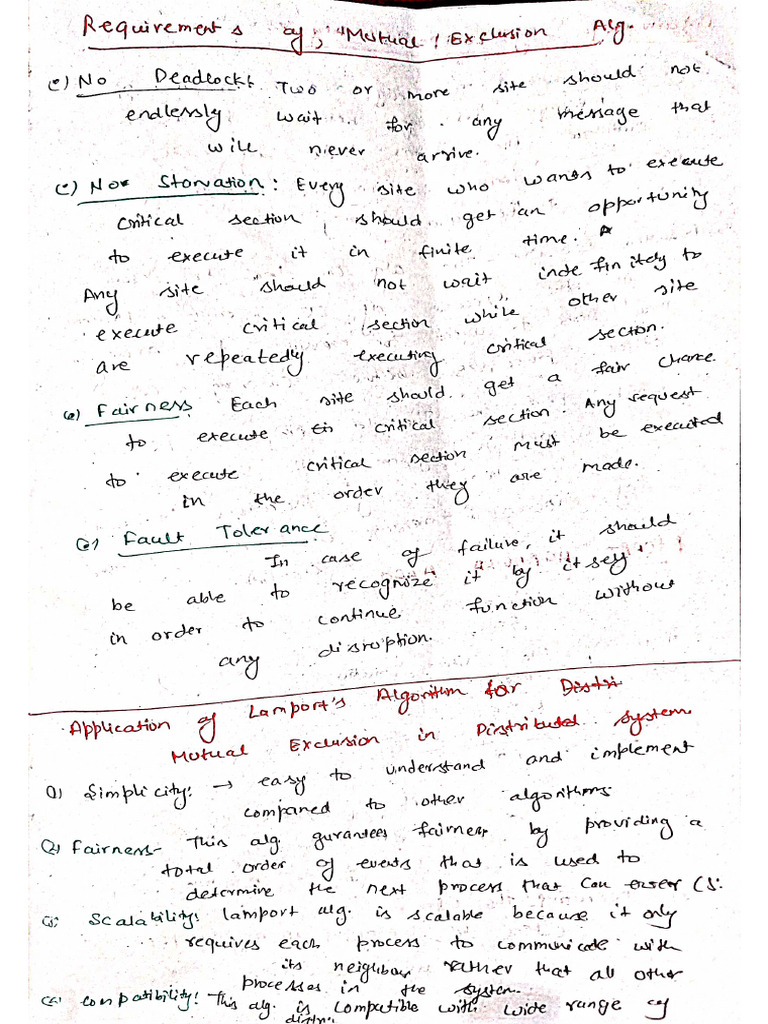 Requirements of, "Mutual Exclusion Alg.
No Deadlock: Two or more site should not
endlessly wait for any message that
will never arrive.
No Starvation: Every site who wants to execute
critical section, should get an opportunity
to execute it in finite time.
Any site should not wait indefinitely to
execute critical section while other site
are repeatedly executing critical section.
Fairness Each site should get a fair chance
to execute critical section. Any request
to execute critical section must be executed
in the order they are made.
Fault Tolerance
In case of failure, it should
be able to recognize it by itself
in order to continue function without
any disruption.
Application of Lamport's Algorithm for Distri
Mutual Exclusion in Distributed System
Simplicity: → easy to understand and implement
compared to other algorithms.
Fairness- This alg. gurantees fairness by providing a
total order of events that is used to
determine the next process that can enter CS.
Scalability: lamport alg. is scalable because it only
requires each process to communicate with
its neighbour rather that all other
processes in the system.
Compatibility: This alg. is compatible with wide range of
distri